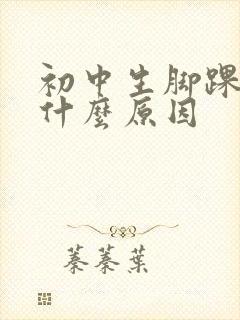 初中生脚踝
什麼原因
蓁蓁葉